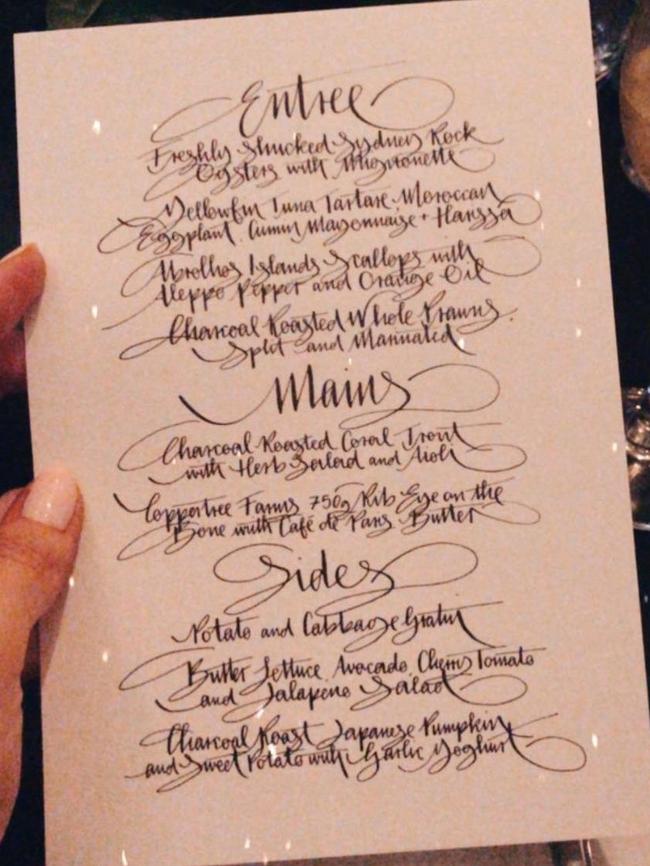 Entree
Freshly Shucked Sydney Rock
Oysters with Mignonette
Yellowfin Tuna Tartare Moroccan
Eggplant, Cumin Mayonnaise + Harissa
Abrolhos Islands Scallops with
Aleppo Pepper and Orange Oil
Charcoal Roasted Whole Prawns
Split and Marinated
Mains
Charcoal Roasted Coral Trout
with Herb Salad and Aioli
Coppertree Farms 750g Rib Eye on the
Bone with Café de Paris Butter
Sides
Potato and Cabbage Gratin
Butter Lettuce, Avocado, Cherry Tomato
and Jalapeno Salad
Charcoal Roast Japanese Pumpkin
and Sweet Potato with Garlic Yoghurt